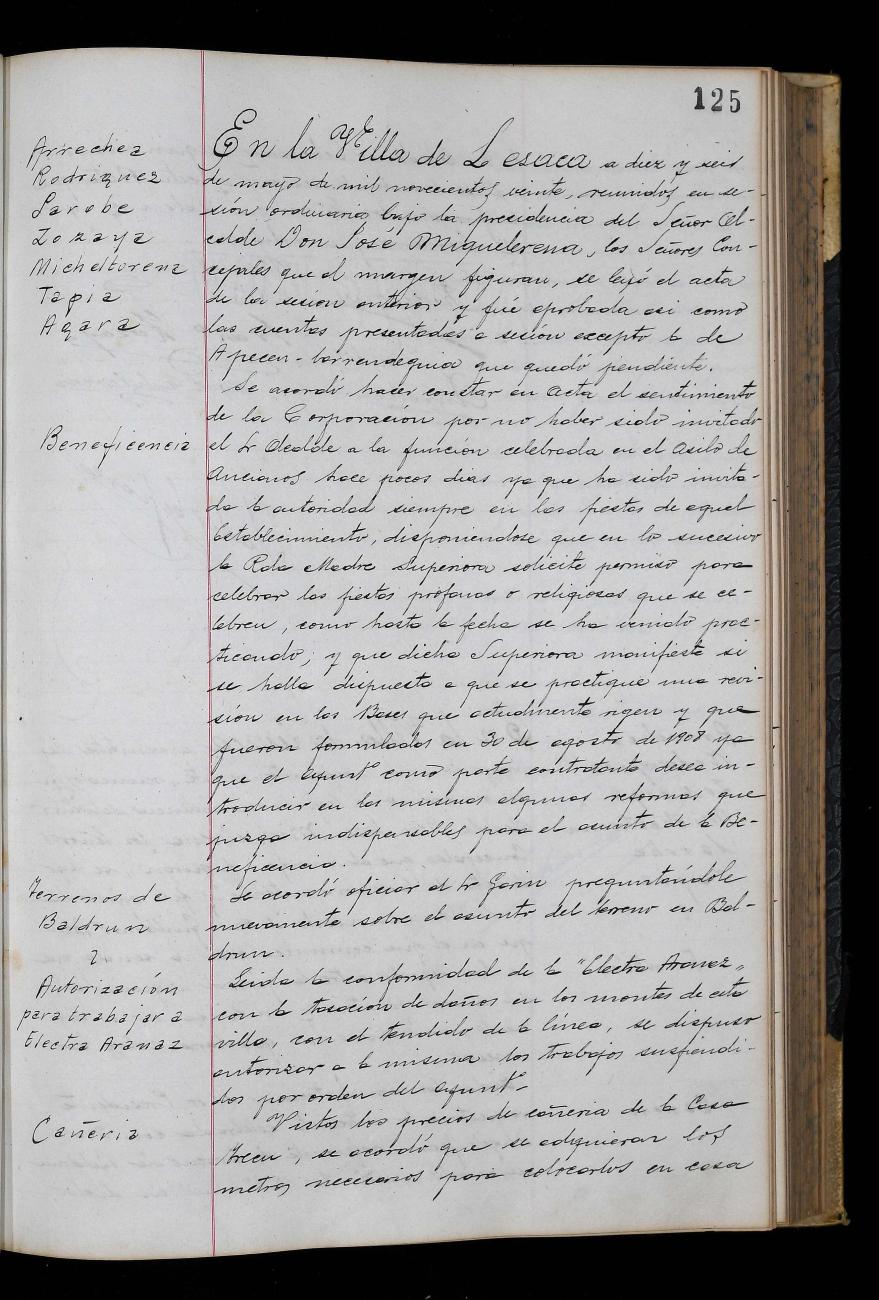 125
Arrechea
Rodriguez
Larobe
Lozaya
Micheltorena
Tapia
Agara
En la Villa de Lesaca a diez y seis
de mayo de mil novecientos veinte, reunidos en se-
sión ordinaria bajo la presidencia del Señor Al-
calde Don José Miguelerena, los Señores Con-
cejales que al margen figuran, se leyó el acta
de la sesion anterior y fué aprobada asi como
las cuentas presentadas a sesión excepto la de
Apecen-barrendeguia que quedó pendiente.
Se acordó hacer constar en acta el sentimiento
de la Corporación por no haber sido invitado
Beneficencia
el Sr Alcalde a la función celebrada en el Asilo de
Ancianos hace pocos dias ya que ha sido invita-
da la autoridad siempre en las fiestas de aquel
Establecimiento, disponiendose que en lo sucesivo
la Rda Madre Superiora solicite permiso para
celebrar las fiestas profanas o religiosas que se ce-
lebren, como hasta la fecha se ha venido prac-
ticando; y que dicha Superiora manifieste si
se halla dispuesta a que se practique una revi-
sión en las Bases que actualmente rigen y que
fueron formuladas en 30 de agosto de 1908 ya
que el Ayunt.º como parte contratante desea in-
troducir en las mismas algunas reformas que
juzga indispensables para el asunto de la Be-
neficencia.
Terrenos de
Baldrun
Se acordó oficiar al Sr Garin preguntándole
nuevamente sobre el asunto del terreno en Bal-
drun.
Autorización
para trabajar a
Electra Aranaz
Leida la conformidad de la "Electra Aranaz"
con la tasación de daños en los montes de esta
villa, con el tendido de la línea, se dispuso
autorizar a la misma los trabajos suspendi-
dos por orden del Ayunt.º
Cañeria
Vistos los precios de cañeria de la Casa
, se acordó que se adquieran los
metros necesarios para colocarlos en casa